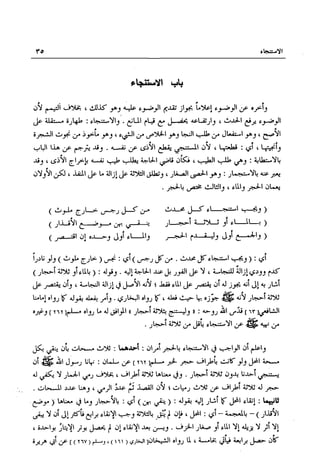 الاستنجاء
٣٥
باب الاستنجاء
وأخره عن الوضوء إعلاماً بجواز تقديم الوضوء عليه وهو كذلك ، بخلاف التيمم لأن
الوضوء يرفع الحدث ، وارتفاعه يحصل مع قيام المانع . والاستنجاء : طهارة مستقلة على
الأصح ، وهو استفعال من طلب النجا وهو الخلاص من الشيء ، وهو مأخوذ من نجوت الشجرة
وأنجيتها ، أي : قطعتها ، لأن المستنجي يقطع الأذى عن نفسه . وقد يترجم عن هذا الباب
بالاستطابة : وهي طلب الطيب ، فكأن قاضي الحاجة يطلب طيب نفسه بإخراج الأذى ، وقد
يعبر عنه بالاستجمار : وهو الحصى الصغار ، وتطلق الثلاثة على إزالة ما على المنفذ ، لكن الأولان
يعمان الحجر والماء ، والثالث مختص بالحجر .
( ويجب استنجاء كل محدث من كل رجس خارج ملوث )
( بالماء أو ثلاثة أحجار ينقي بهن موضع الأقذار )
( والجمع أولى وليقدم الحجر والماء أولى وحده إن اقتصر )
أي : ( ويجب استنجاء كل محدث . من كل رجس ) أي : نجس ( خارج ملوث ) ولو نادراً
كدم وودي إزالة للنجاسة ، لا على الفور بل عند الحاجة إليه . وقوله : ( بالماء أو ثلاثة أحجار )
أشار به إلى أنه يجوز له أن يقتصر على الماء فقط ؛ لأنه الأصل في إزالة النجاسة ، وأن يقتصر على
ثلاثة أحجار لأنه ﷺ جوّزه بها حيث فعله ، كما رواه البخاري . وأمر بفعله بقوله كما رواه إمامنا
الشافعي (١٣) قدّس الله روحه : « وليستنج بثلاثة أحجار » الموافق له ما رواه مسلم (٢٦٢) وغيره
من نهيه ﷺ عن الاستنجاء بأقل من ثلاثة أحجار .
واعلم أن الواجب في الاستنجاء بالحجر أمران : أحدهما : ثلاث مسحات بأن ينقي بكل
مسحة المحل ولو كانت بأطراف حجر لخبر مسلم (٢٦٢) عن سلمان : نهانا رسول الله ﷺ أن
يستنجي أحدنا بدون ثلاثة أحجار . وفي معناها ثلاثة أطراف ، بخلاف رمي الجمار لا يكفي له
حجر له ثلاثة أطراف عن ثلاث رميات ؛ لأن القصد ثَمَّ عددُ الرمي ، وهنا عدد المسحات .
ثانيهما : إنقاء المحل كما أشار إليه بقوله : ( ينقي بهن ) أي : بالأحجار وما في معناها ( موضع
الأقذار ) - بالمعجمة - أي : المحل ، فإن لم يُنق بالثلاثة وجب الإنقاء برابع فأكثر إلى أن لا يبقى
إلا أثر لا يزيله إلا الماء أو صغار الخزف . ويسن بعد الإنقاء إن لم يحصل بوتر الإيتارُ بواحدة ،
كأن حصل برابعة فيأتي بخامسة ، لما رواه الشيخان [البخاري (١٦١) ، ومسلم (٢٣٧)] عن أبي هريرة